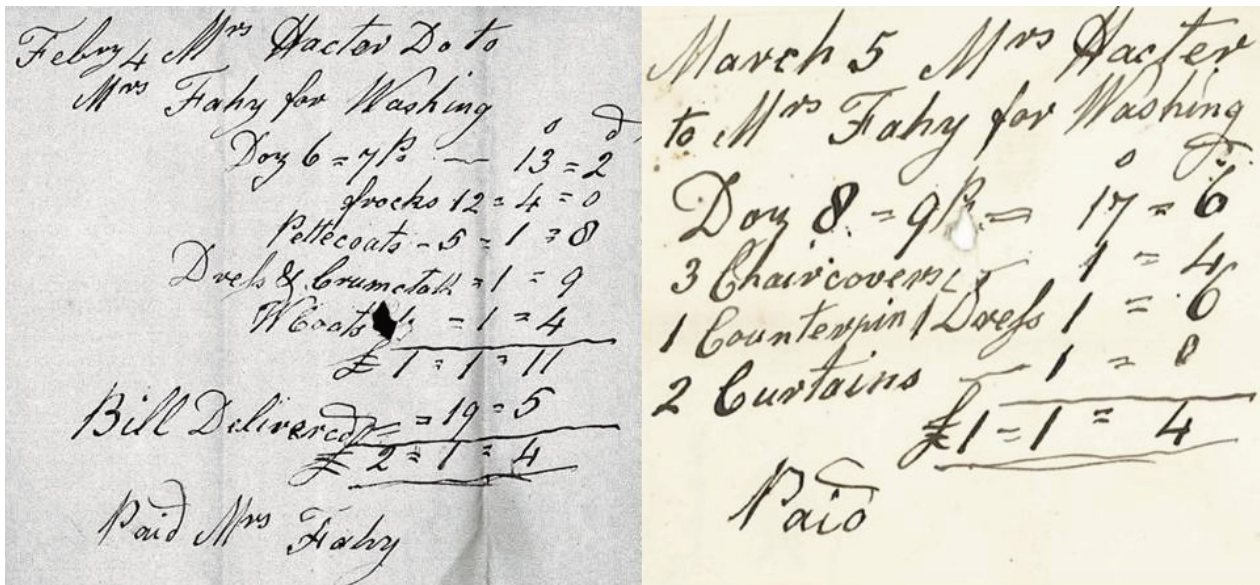 Febry 4 Mrs Hacter Do to
Mrs Fahy for Washing
s d
Doz 6 = 7 Ps — 13 = 2
frocks 12 = 4 = 0
Pettecoats - 5 = 1 = 8
Dress & Crumcloth = 1 = 9
WCoats = 1 = 4
£ 1 = 1 = 11
Bill Delivered = = 19 = 5
£ 2 = 1 = 4
Paid Mrs Fahy
March 5 Mrs Hacter
to Mrs Fahy for Washing
s d
Doz 8 = 9 Ps = 17 = 6
3 Chaircovers 1 = 4
1 Counterpin 1 Dress 1 = 6
2 Curtains — 1 = 0
£1 = 1 = 4
Paid